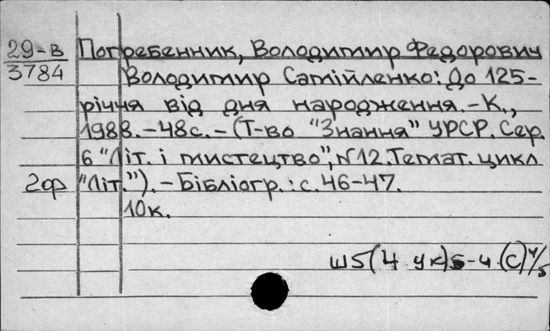 29-в Погребенник, Володимир Федорович
3784 Володимир Самійленко: До 125-
річчя від дня народження.-К.,
1988.-48с.-(Т-во "Знання" УРСР. Сер.
6 "Літ. і мистецтво", N12. Темат. цикл
2ор "Літ.").-Бібліогр.: с.46-47.
10к.
Ш5(4 Ук)5-4 (С) 4/5